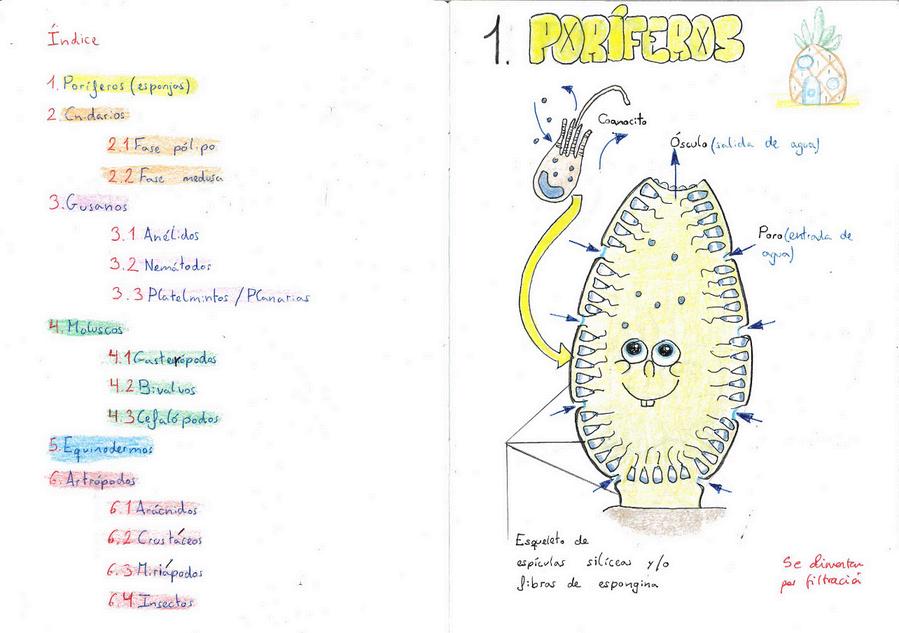 Índice
1. Poríferos (esponjas)
2. Cnidarios
2.1 Fase pólipo
2.2 Fase medusa
3. Gusanos
3.1 Anélidos
3.2 Nemátodos
3.3 Platelmintos / Planarias
4. Moluscos
4.1 Gasterópodos
4.2 Bivalvos
4.3 Cefalópodos
5. Equinodermos
6. Artrópodos
6.1 Arácnidos
6.2 Crustáceos
6.3 Miriápodos
6.4 Insectos
1. PORÍFEROS
Coanocito
Ósculo (salida de agua)
Poro (entrada de
agua)
Esqueleto de
espículas silíceas y/o
fibras de espongina
Se
por filtració